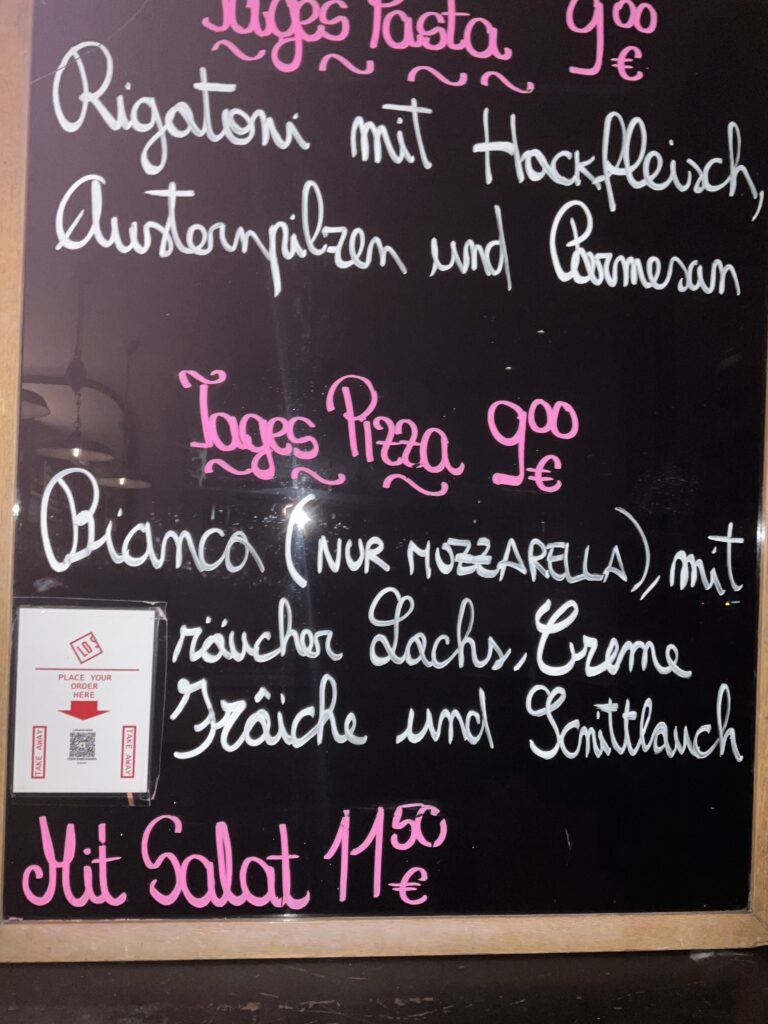 Tages Pasta 9⁰⁰ €
Rigatoni mit Hackfleisch,
Austernpilzen und Parmesan
Tages Pizza 9⁰⁰ €
Bianca (NUR MOZZARELLA), mit
räucher Lachs, Creme
Frâiche und Scnittlauch
LOS
PLACE YOUR
ORDER
HERE
TAKE AWAY
TAKE AWAY
Mit Salat 11⁵⁰ €